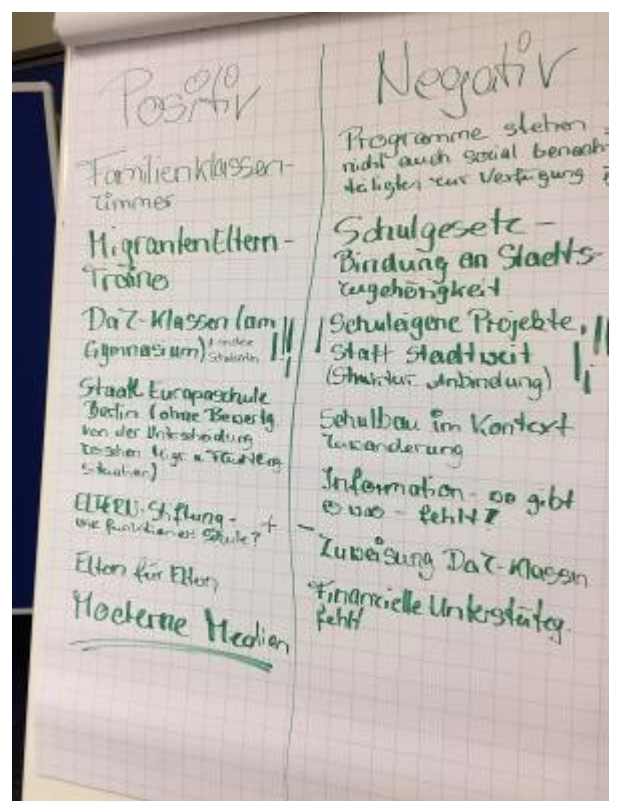 Positiv
Familienklassen-
zimmer
MigrantenEltern-
DaZ-Klassen (am
Gymnasium)
Staatl. Europaschule
Berlin (ohne
von der
zwischen
ELTERN-Stiftung - +
wie funktioniert Schule?
Eltern für Eltern
Moderne Medien
Negativ
Programme stehen
nicht auch sozial benach-
teiligten zur Verfügung
Schulgesetz -
Bindung an Staats-
zugehörigkeit
Schuleigene Projekte,
statt stadtweit
(Struktur Anbindung)
Schulbau im Kontext
Zuwanderung
Information - wo gibt
es was - fehlt?
Zuweisung DaZ-Klassen
Finanzielle
fehlt